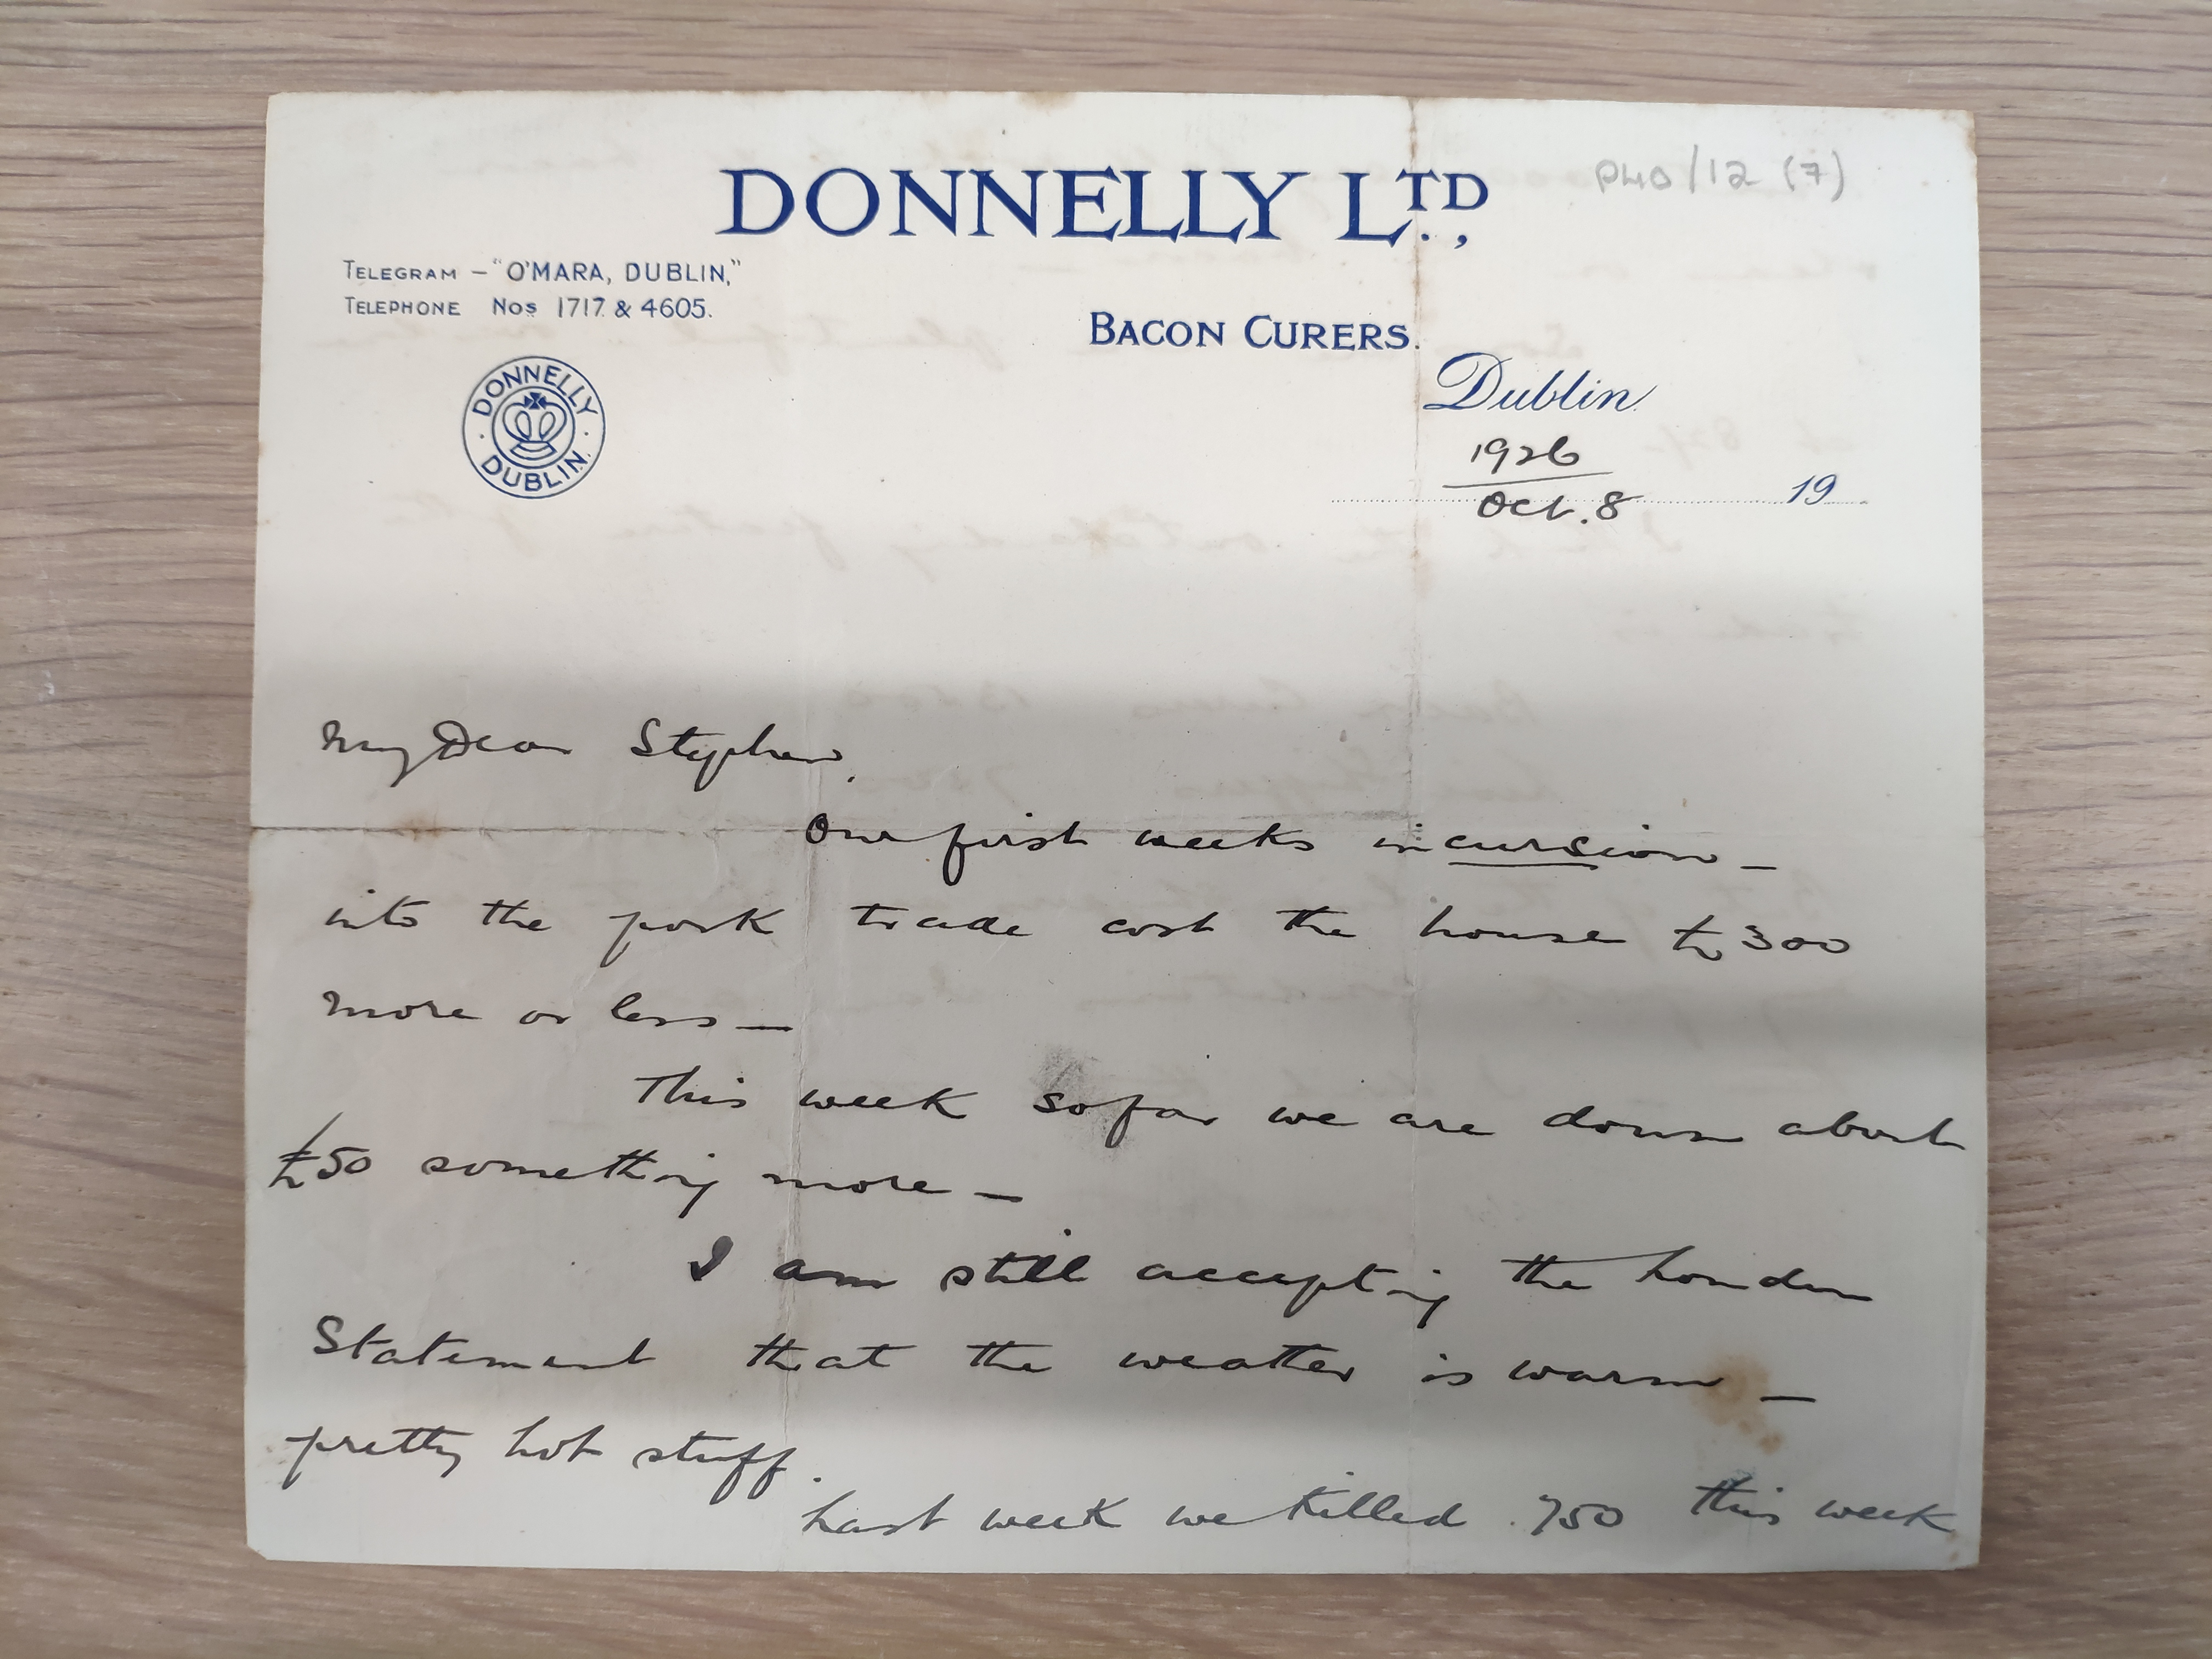 P40/12 (7)
DONNELLY LTD.,
TELEGRAM – "O'MARA, DUBLIN,"
TELEPHONE Nos 1717 & 4605.
BACON CURERS.
DONNELLY
DUBLIN.
Dublin
1926
Oct. 8 19
My Dear Stephen,
Our first weeks incursion –
into the pork trade cost the house £300
more or less –
This week so far we are down about
£50 something more –
I am still accepting the London
Statement that the weather is warm –
pretty hot stuff.
Last week we killed 750 this week